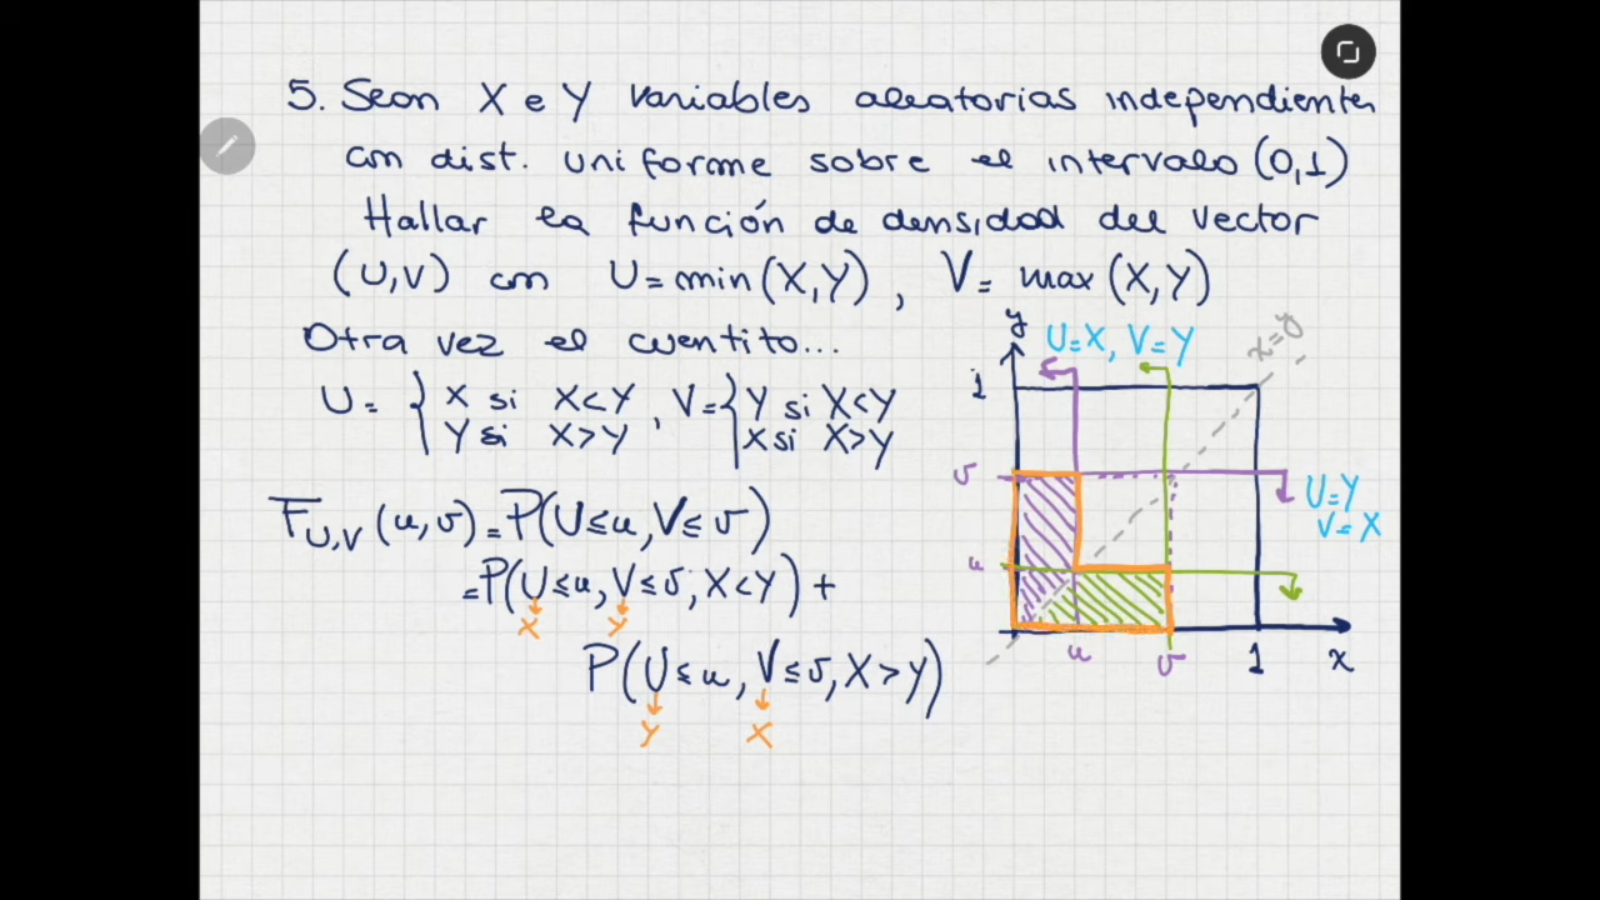 5. Sean X e Y variables aleatorias independientes
con dist. uniforme sobre el intervalo (0,1)
Hallar la función de densidad del vector
(U,V) con U=min(X,Y), V= max(X,Y)
Otra vez el cuentito...
U= { X si X<Y , V= { Y si X<Y
Y si X>Y X si X>Y
F_{U,V}(u,v)=P(U≤u,V≤v)
=P(U≤u,V≤v,X<Y)+
X Y
P(U≤u,V≤v,X>Y)
Y X
y
U=X, V=Y
x=y
1
v
U=Y
V=X
u
u
v
1
x